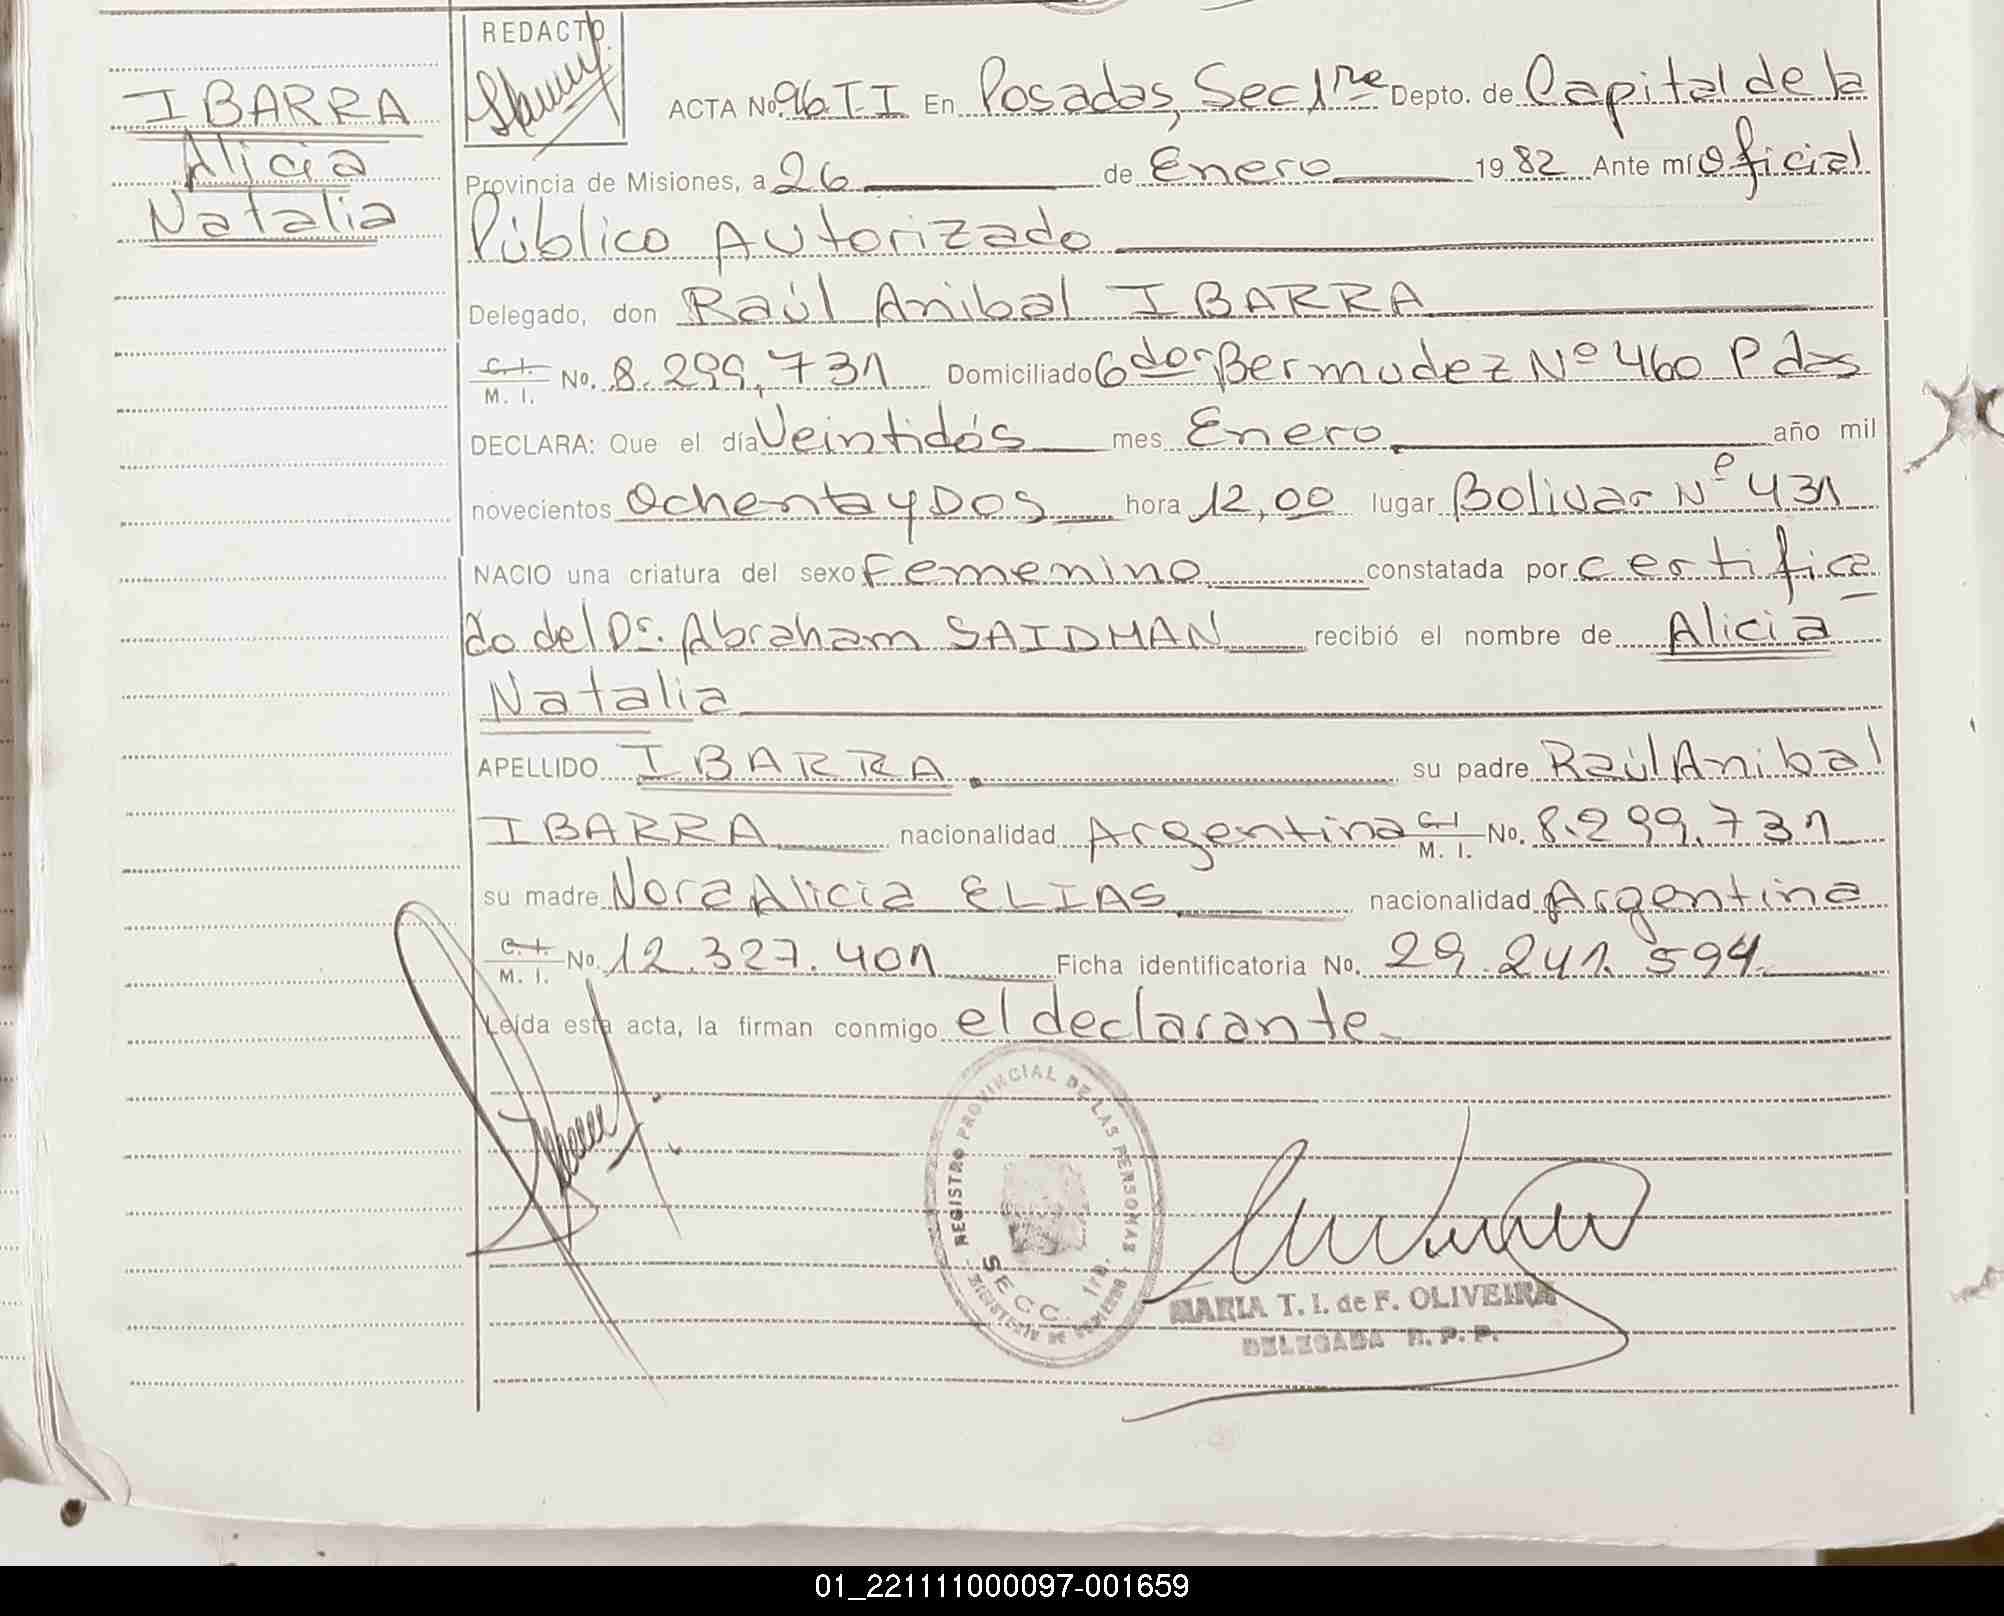 IBARRA
Alicia
Natalia
REDACTO
ACTA No. 96 T I En Posadas, Sec 1ra Depto. de Capital de la
Provincia de Misiones, a 26 de Enero 19 82 Ante mí Oficial
Público Autorizado
Delegado, don Raúl Anibal IBARRA
C. I.
M. I. No. 8.299.731 Domiciliado Gdor Bermudez Nº 460 Pdas
DECLARA: Que el día Veintidós mes Enero año mil
novecientos Ochenta y Dos hora 12,00 lugar Bolivar Nº 431
NACIO una criatura del sexo Femenino constatada por certifica
do del Dr. Abraham SAIDMAN recibió el nombre de Alicia
Natalia
APELLIDO IBARRA. su padre Raúl Anibal
IBARRA nacionalidad Argentina C. I. M. I. No. 8.299.731
su madre Nora Alicia ELIAS nacionalidad Argentina
C. I. M. I. No. 12.327.401 Ficha identificatoria No. 29.241.594
Leída esta acta, la firman conmigo el declarante
REGISTRO PROVINCIAL DE LAS PERSONAS
SECC. 1ra.
MARIA T. I. de F. OLIVEIRA
DELEGADA R. P. P.
01_221111000097-001659